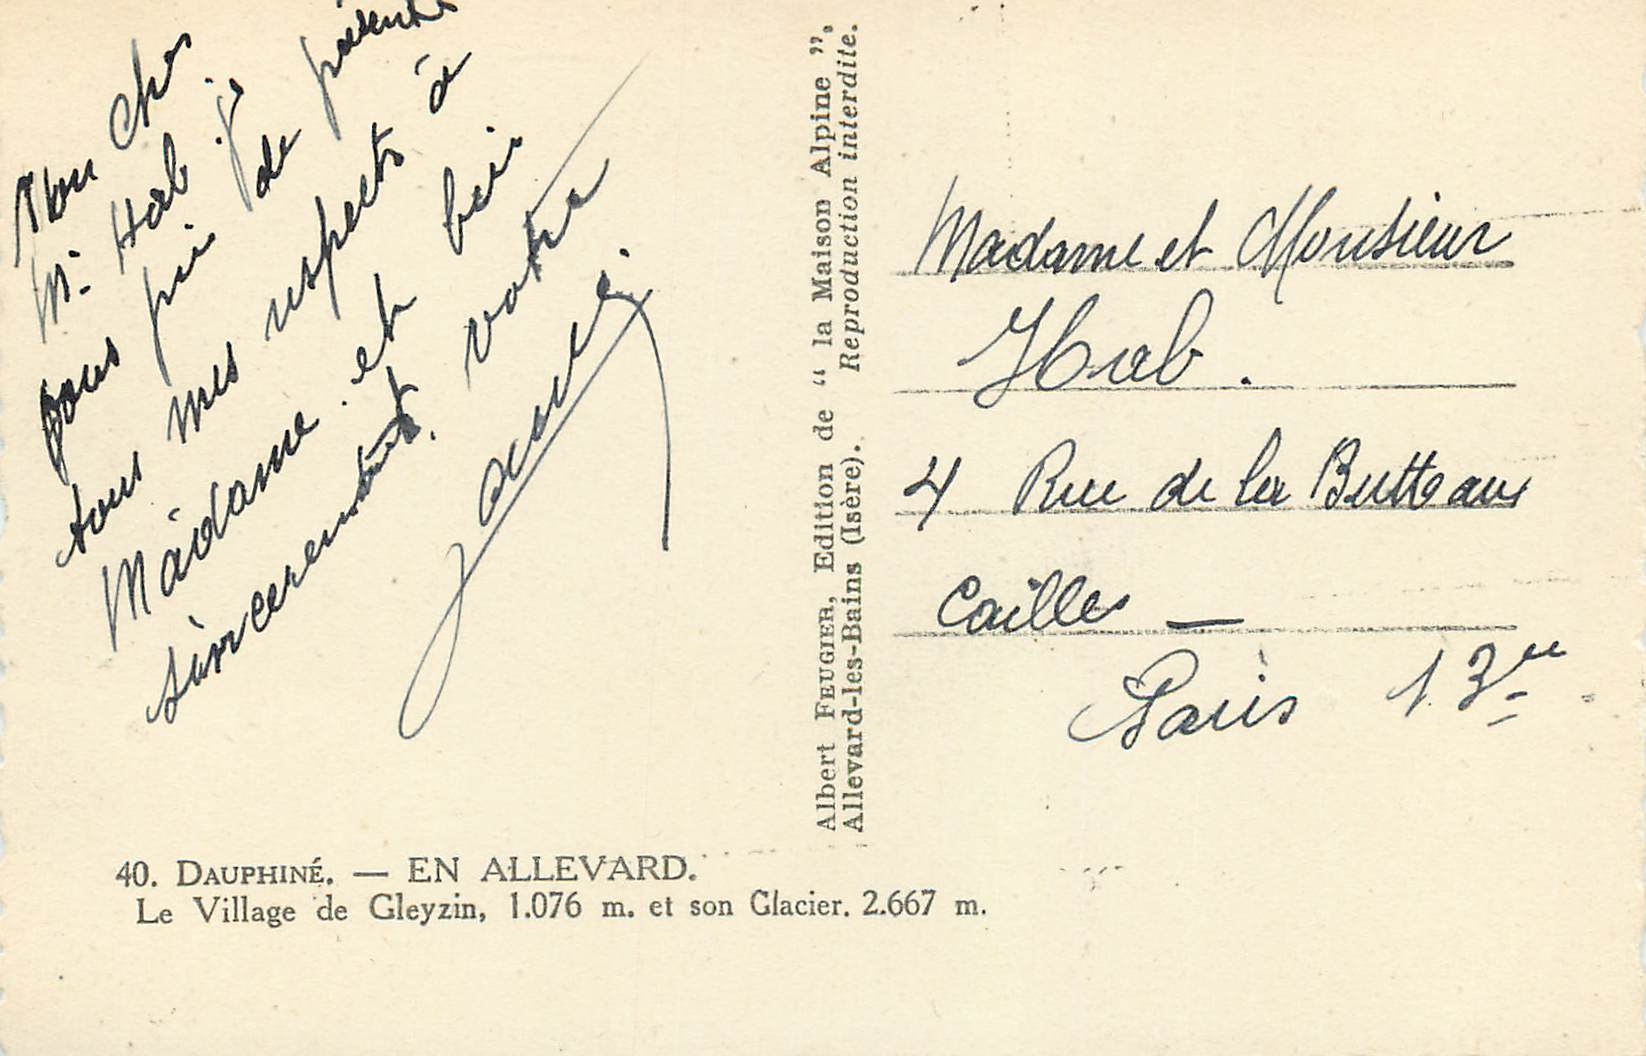 Mon cher
Mr. Hab je
vous prie de présenter
tous mes respects à
Madame. et bien
sincerement votre
Albert FEUGIER, Edition de “ la Maison Alpine ”,
Allevard-les-Bains (Isère). Reproduction interdite.
Madame et Monsieur
Hab.
4 Rue de la Butte aux
Cailles —
Paris 13ee
40. DAUPHINÉ. — EN ALLEVARD.
Le Village de Gleyzin, 1.076 m. et son Glacier. 2.667 m.